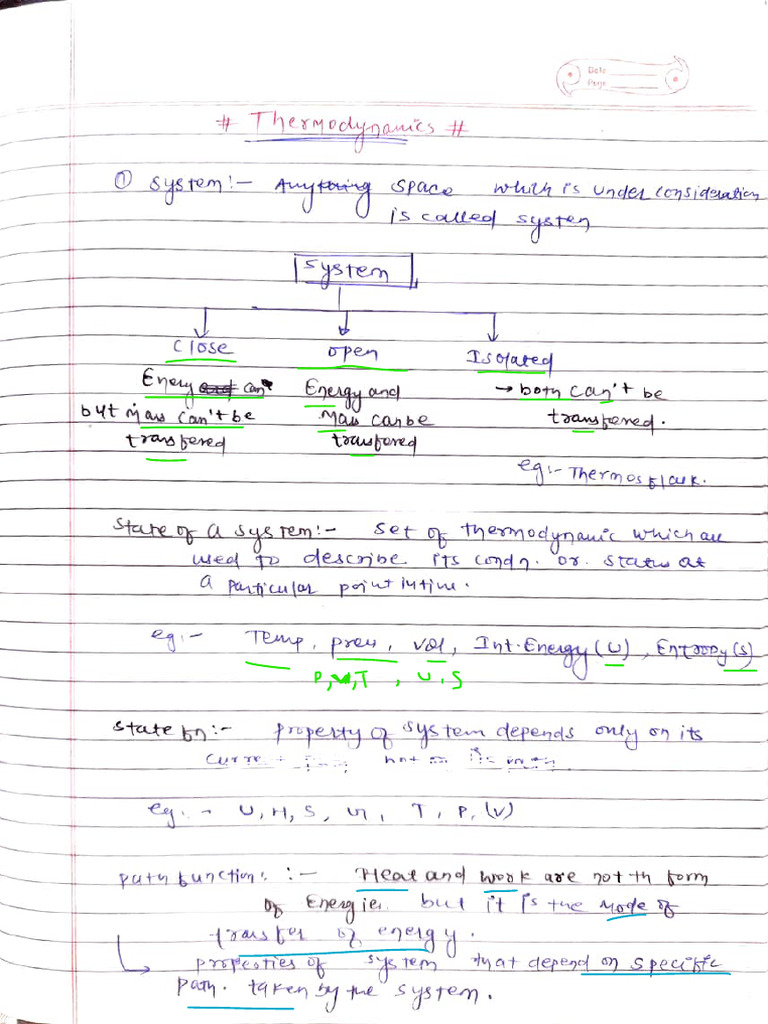 Date
Page
# Thermodynamics #
① System:- Anything space which is under consideration
is called system
System
Close open Isolated
Energy can Energy and → both can't be
but Mass can't be Mass can be transfered.
transfered transfered
eg:- Thermos flask.
State of a system:- set of thermodynamic which are
used to describe its condn. or status at
a particular point in time.
eg:- Temp, pres, vol, Int. Energy (U), Entropy (S)
P, V, T, U, S
State fn:- property of system depends only on its
curre not on its path.
eg. - U, H, S, T, P, (V)
path function: :- Heat and work are not th form
of Energies but it is the mode of
transfer of energy.
properties of system that depend on specific
path. taken by the system.